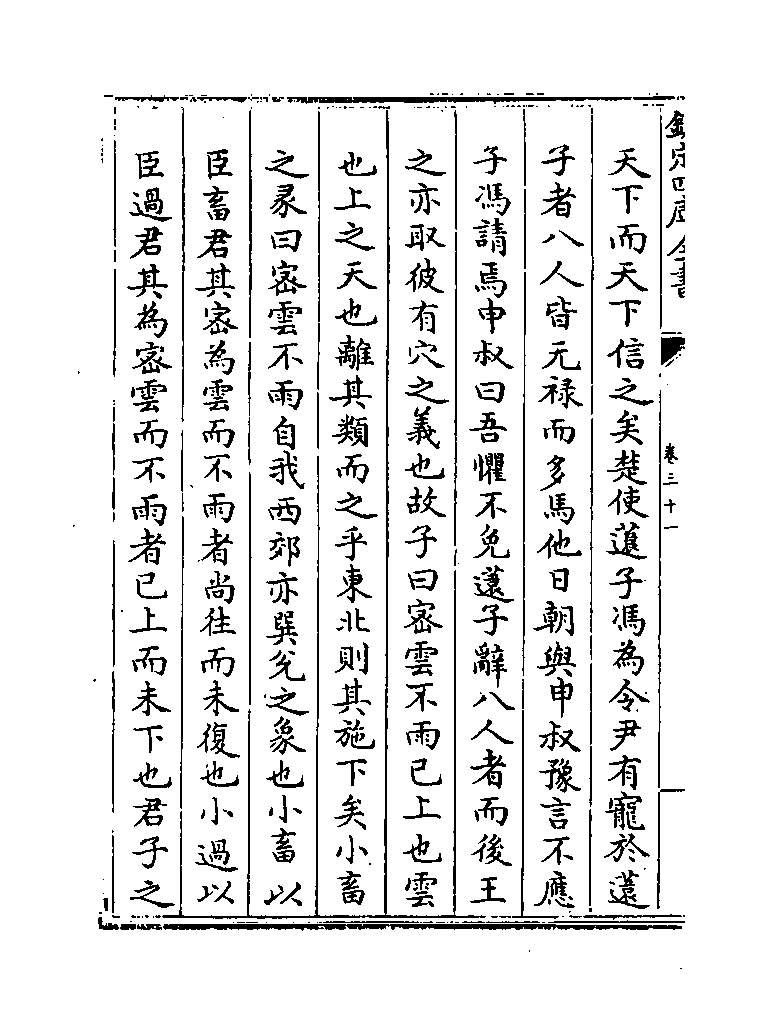 欽定四庫全書
卷三十一
天下而天下信之矣楚使薳子馮為令尹有寵於薳
子者八人皆无禄而多馬他日朝與申叔豫言不應
子馮請焉申叔曰吾懼不免薳子辭八人者而後王
之亦取彼有穴之義也故子曰宻雲不雨已上也雲
也上之天也離其類而之乎東北則其施下矣小畜
之彖曰宻雲不雨自我西郊亦巽兊之象也小畜以
臣畜君其宻為雲而不雨者尚往而未復也小過以
臣過君其為宻雲而不雨者已上而未下也君子之